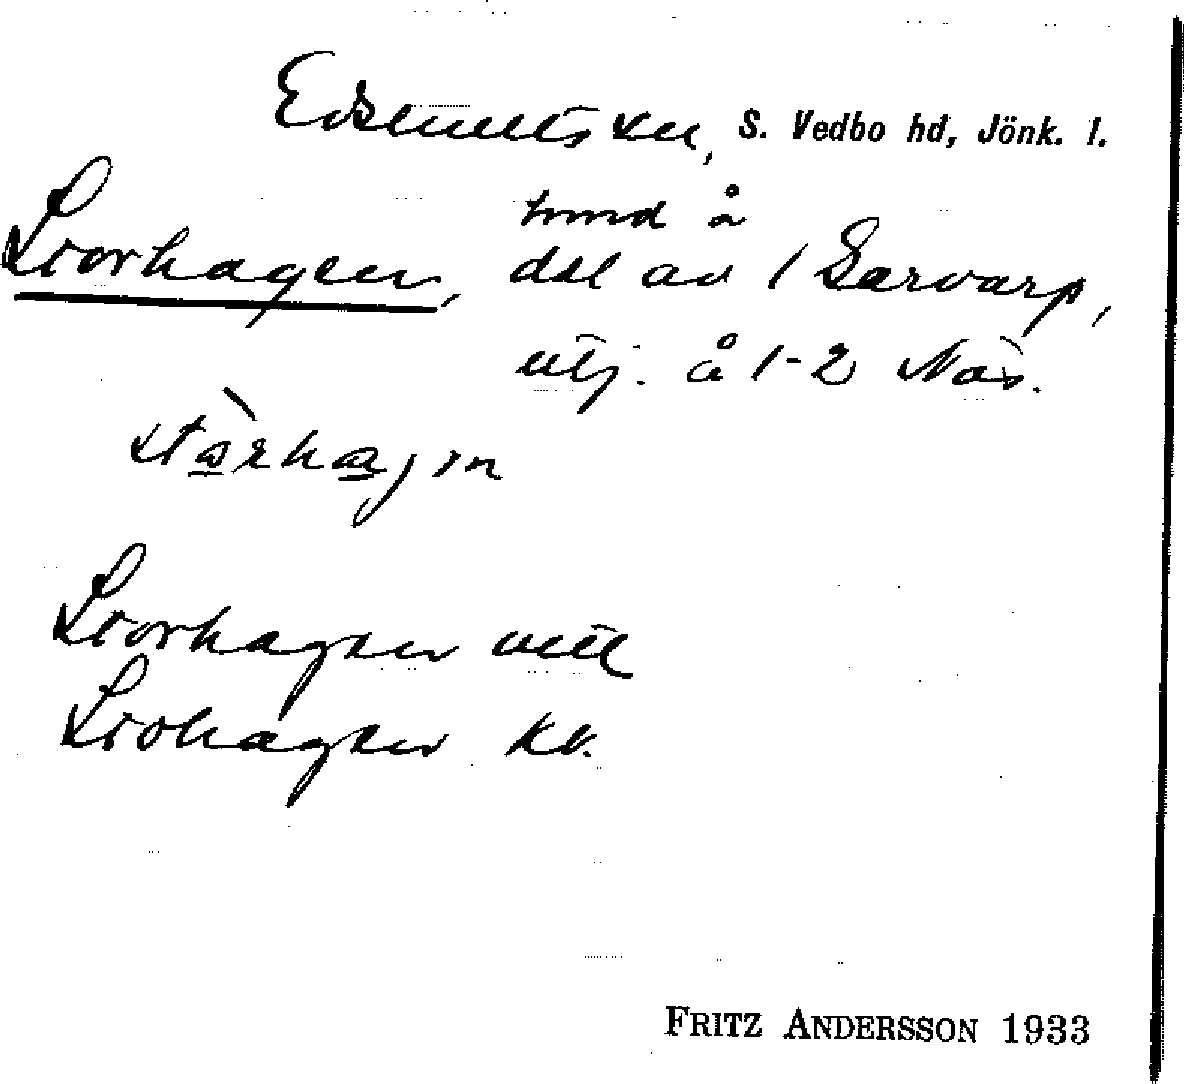 Edshults sn, S. Vedbo hd, Jönk. l.
Storhagen, hmd å
del av 1 Sarvarp,
utj. å 1-2 Näs.
stàrhagən
Storhagen utt
Stohagen kv.
FRITZ ANDERSSON 1933